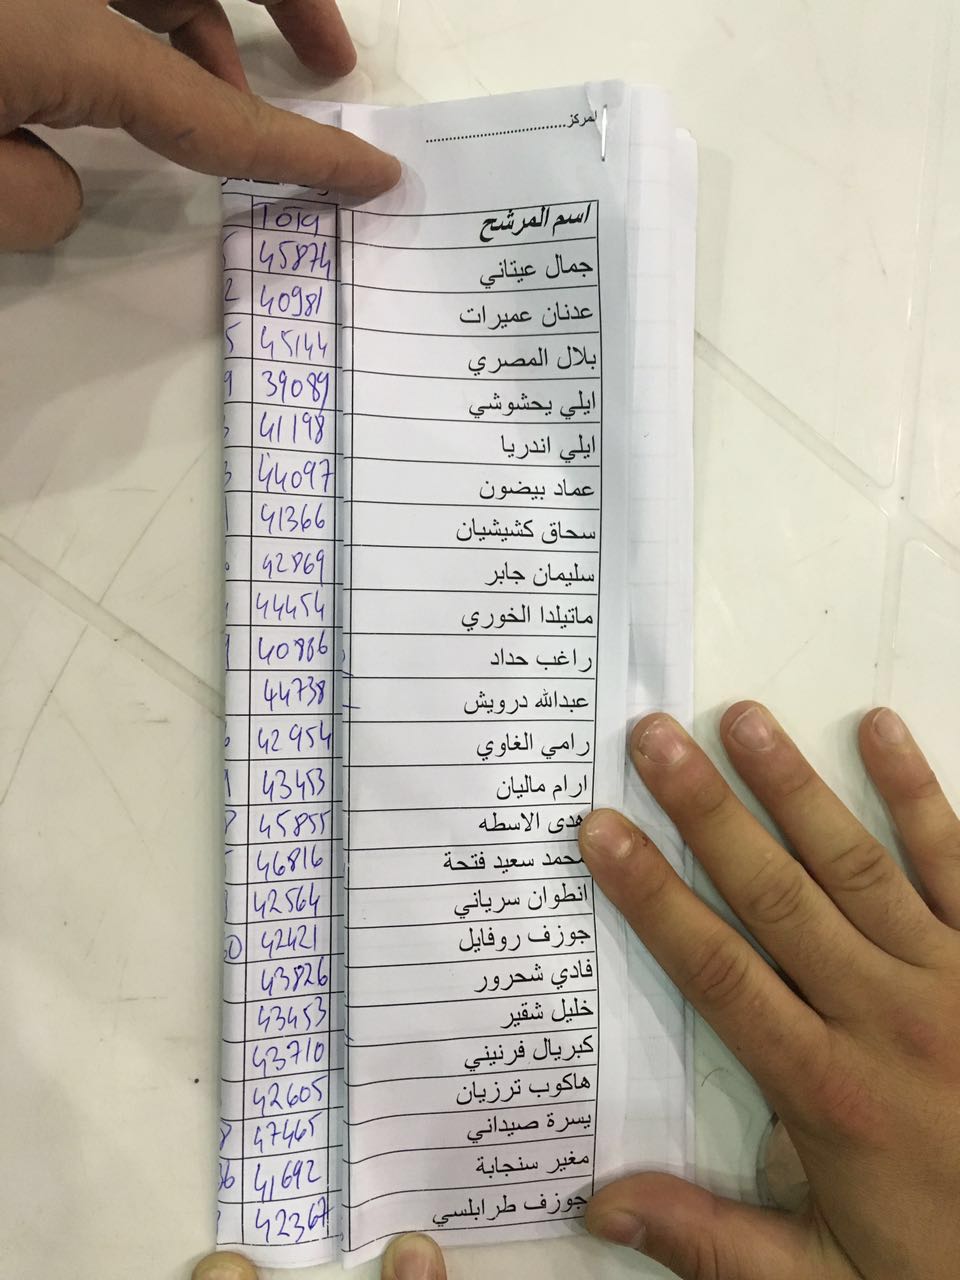 المركز................................
اسم المرشح Total
جمال عيتاني 45874
عدنان عميرات 40981
بلال المصري 45144
ايلي يحشوشي 39089
ايلي اندريا 41198
عماد بيضون 44097
سحاق كشيشيان 41366
سليمان جابر 42869
ماتيلدا الخوري 44454
راغب حداد 40886
عبدالله درويش 44738
رامي الغاوي 42954
ارام ماليان 43453
هدى الاسطه 45855
محمد سعيد فتحة 46816
انطوان سرياني 42564
جوزف روفايل 42421
فادي شحرور 43826
خليل شقير 43453
كبريال فرنيني 43710
هاكوب ترزيان 42605
يسرة صيداني 47465
مغير سنجابة 41692
جوزف طرابلسي 42367